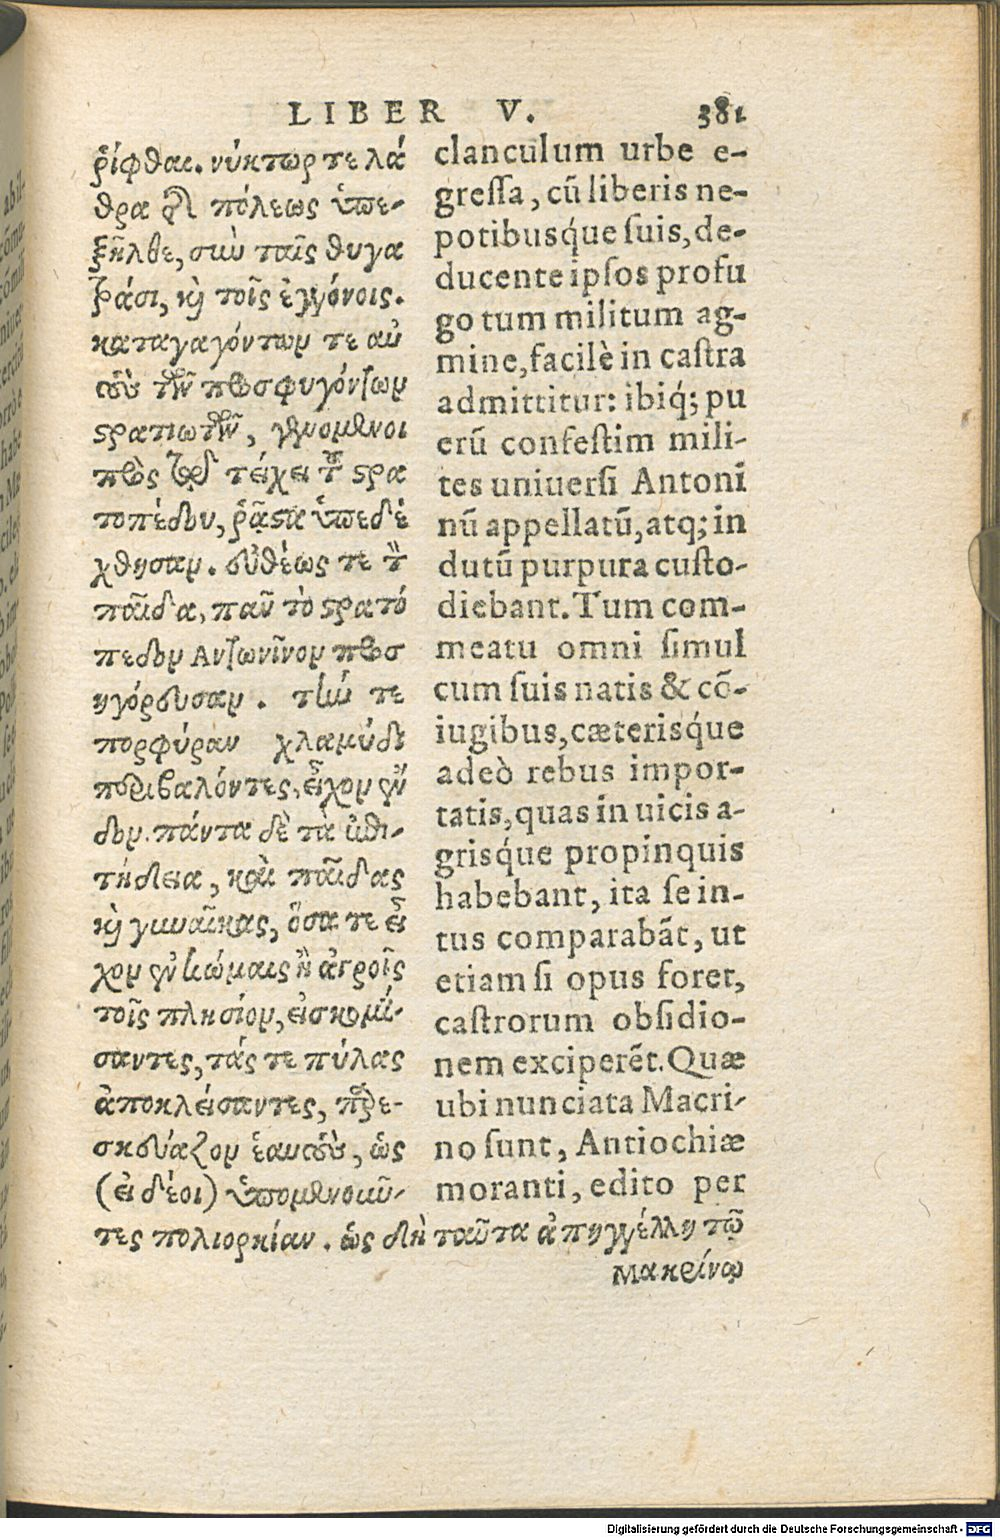 LIBER V. 381
ῥίφθαι. νύκτωρ τε λά
θρα τῆς πόλεως ὑπε-
ξῆλθε, σὺν ταῖς θυγα
τράσι, καὶ τοῖς ἐγγόνοις.
καταγαγόντων τε αὐ
τοὺς τῶν προσφυγόντων
στρατιωτῶν, γενομένοι
πρὸς τῷ τείχει τοῦ στρα
τοπέδου, ῥᾷστα ὑπεδέ
χθησαν. εὐθέως τε τὸν
παῖδα, πᾶν τὸ στρατό
πεδον Αντωνῖνον προσ
ηγόρευσαν. τῇ τε
πορφύραν χλαμύδι
περιβαλόντες, εἶχον ἔν
δον. πάντα δὲ τὰ ἐπι-
τήδεια, καὶ παῖδας
καὶ γυναῖκας, ὅσα τε εἶ
χον ἐν κώμαις ἢ ἀγροῖς
τοῖς πλησίον, εἰσκομί-
σαντες, τάς τε πύλας
ἀποκλείσαντες, παρε-
σκεύαζον ἑαυτοὺς, ὡς
(εἰ δέοι) ὑπομενοῦν-
τες πολιορκίαν. ὡς δὴ ταῦτα ἀπηγγέλλη τῷ
clanculum urbe e-
gressa, cũ liberis ne-
potibusq́ue suis, de-
ducente ipsos profu
go tum militum ag-
mine, facilè in castra
admittitur: ibiq́; pu
erũ confestim mili-
tes uniuersi Antoni
nũ appellatũ, atq; in
dutũ purpura custo-
diebant. Tum com-
meatu omni simul
cum suis natis & cõ-
iugibus, cæterisq́ue
adeò rebus impor-
tatis, quas in uicis a-
grisq́ue propinquis
habebant, ita se in-
tus comparabãt, ut
etiam si opus foret,
castrorum obsidio-
nem exciperẽt. Quæ
ubi nunciata Macri-
no sunt, Antiochiæ
moranti, edito per
Μακρίνῳ
Digitalisierung gefördert durch die Deutsche Forschungsgemeinschaft - DFG